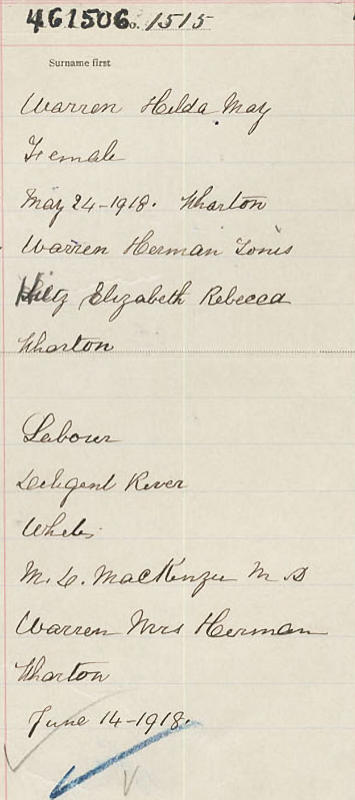 461506 o. 1515
Surname first
Warren Hilda May
Female
May 24-1918. Wharton
Warren Herman
Elizabeth Rebecca
Wharton
Labour
Diligent River
White
M. D. MacKenzie M D
Warren Mrs Herman
Wharton
June 14-1918.